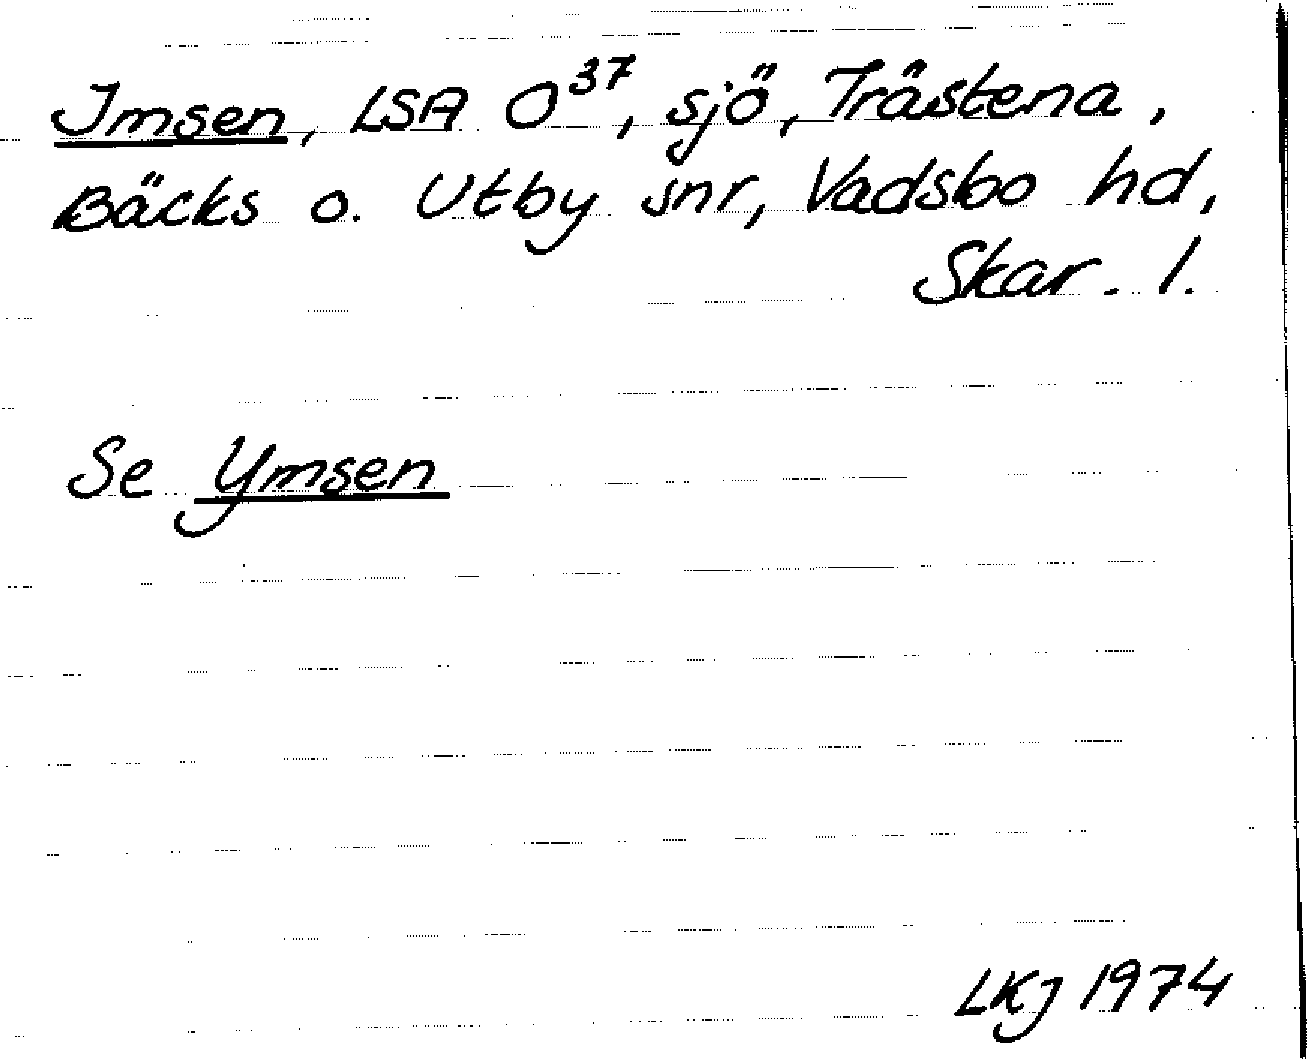 Imsen, LSA O³⁷, sjö, Trästena,
Bäcks o. Utby snr, Vadsbo hd,
Skar. l.
Se Ymsen
LKJ 1974